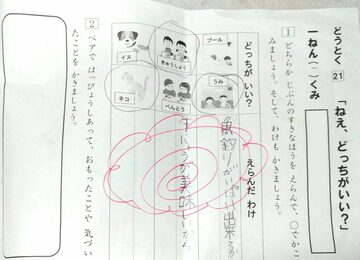 どうとく 21 「ねえ、どっちがいい？」
一ねん（二）くみ
1 どちらか じぶんのすきなほうを えらんで、○でかこ
みましょう。そして、わけも かきましょう。
どっちがいい？ えらんだ わけ
プール うみ
魚釣りが 出来る
きゅうしょく べんとう
美味しいから
イヌ ネコ
2 ペアで はっぴょうしあって、おもったことや 気づい
たことを かきましょう。